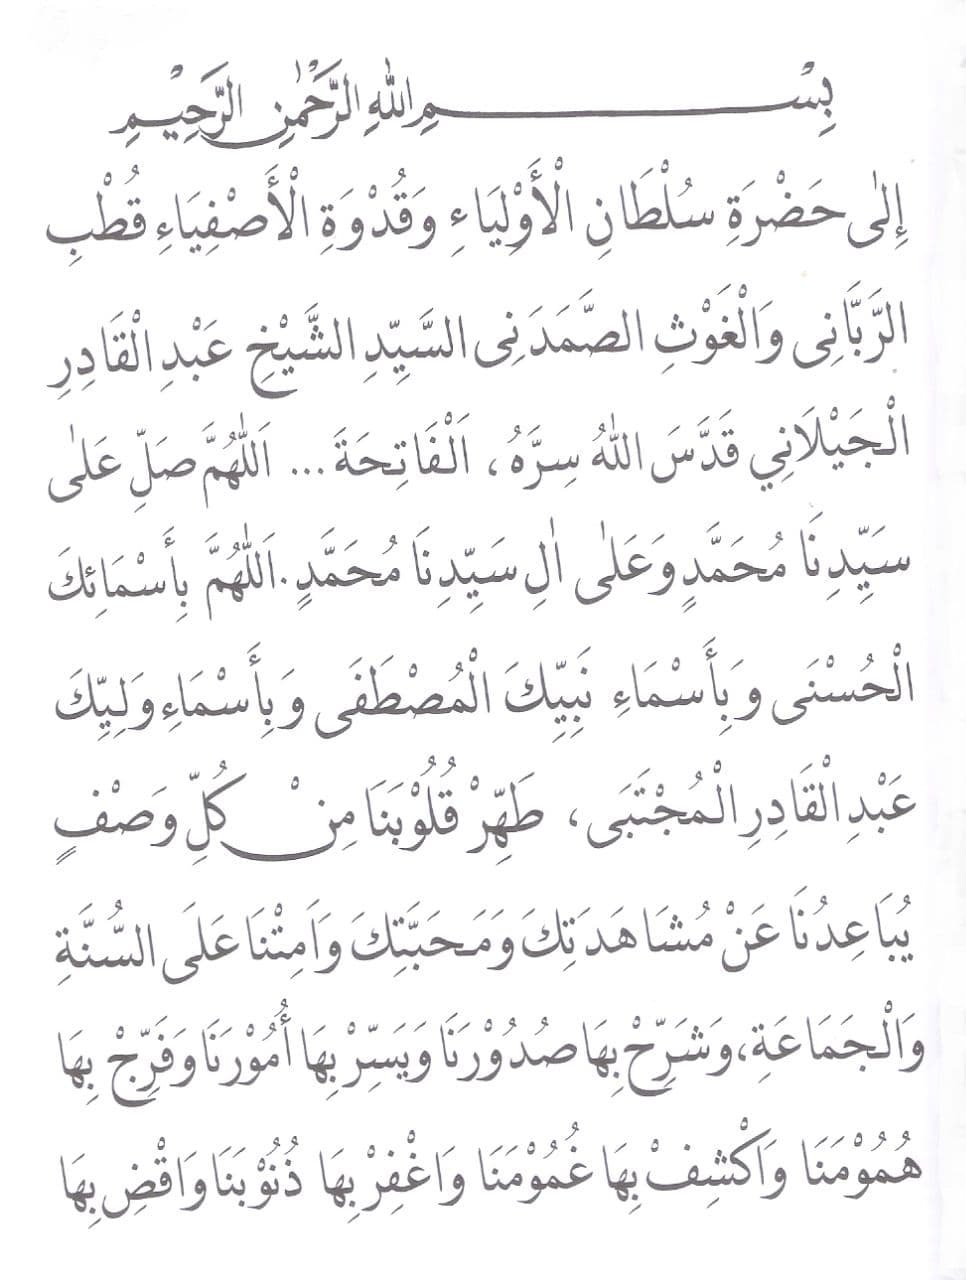 بِسْمِ اللهِ الرَّحْمٰنِ الرَّحِيْمِ
إِلٰى حَضْرَةِ سُلْطَانِ الْأَوْلِيَاءِ وَقُدْوَةِ الْأَصْفِيَاءِ قُطْبِ
الرَّبَّانِى وَالْغَوْثِ الصَّمَدَنِى السَّيِّدِ الشَّيْخِ عَبْدِ الْقَادِرِ
الْجَيْلَانِي قَدَّسَ اللهُ سِرَّهُ، اَلْفَاتِحَةَ ... اَللّٰهُمَّ صَلِّ عَلٰى
سَيِّدِنَا مُحَمَّدٍ وَعَلٰى اٰلِ سَيِّدِنَا مُحَمَّدٍ. اَللّٰهُمَّ بِأَسْمَائِكَ
الْحُسْنَى وَبِأَسْمَاءِ نَبِيِّكَ الْمُصْطَفَى وَبِأَسْمَاءِ وَلِيِّكَ
عَبْدِ الْقَادِرِ الْمُجْتَبَى، طَهِّرْ قُلُوْبَنَا مِنْ كُلِّ وَصْفٍ
يُبَاعِدُنَا عَنْ مُشَاهَدَتِكَ وَمَحَبَّتِكَ وَاَمِتْنَا عَلَى السُّنَّةِ
وَالْجَمَاعَةِ، وَشَرِّحْ بِهَا صُدُوْرَنَا وَيَسِّرْ بِهَا أُمُوْرَنَا وَفَرِّجْ بِهَا
هُمُوْمَنَا وَاَكْشِفْ بِهَا غُمُوْمَنَا وَاغْفِرْ بِهَا ذُنُوْبَنَا وَاقْضِ بِهَا